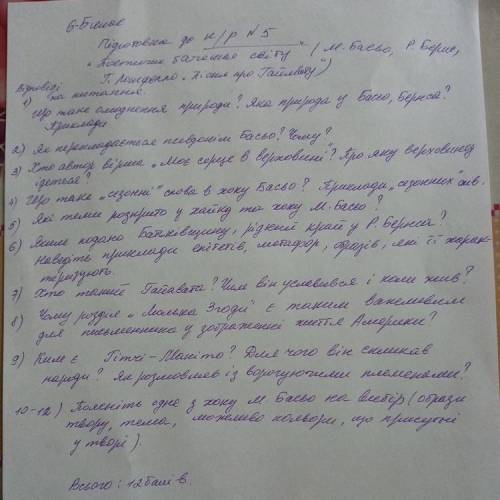 6-Білет
Підготовка до к/р №5
"Поетичне бачення світу" (М. Басьо, Р. Бернс,
Г. Лонгфелло "Пісня про Гайавату")
Відповіді на питання.
1) Що таке олюднення природи? Яка природа у Басьо, Бернса?
Приклади
2) Як перекладається псевдонім Басьо? Чому?
3) Хто автор вірша "Моє серце в верховині"? Про яку верховину
йдеться?
4) Що таке "сезонні" слова в хоку Басьо? Приклади "сезонних" слів.
5) Які теми розкрито у хайку та хоку М. Басьо?
6) Якою подано Батьківщину, рідний край у Р. Бернса?
Наведіть приклади епітетів, метафор, образів, які її харак-
теризують.
7) Хто такий Гайавата? Чим він уславився і коли жив?
8) Чому розділ "Люлька Згоди" є таким важливим
для письменника у зображенні життя Америки?
9) Ким є Гітчі-Маніто? Для чого він скликав
народи? Як розмовляв із ворогуючими племенами?
10-12) Поясніть одне з хоку М. Басьо на вибір (образи
твору, тема, можливо кольори, що присутні
у творі).
Всього: 12 балів.